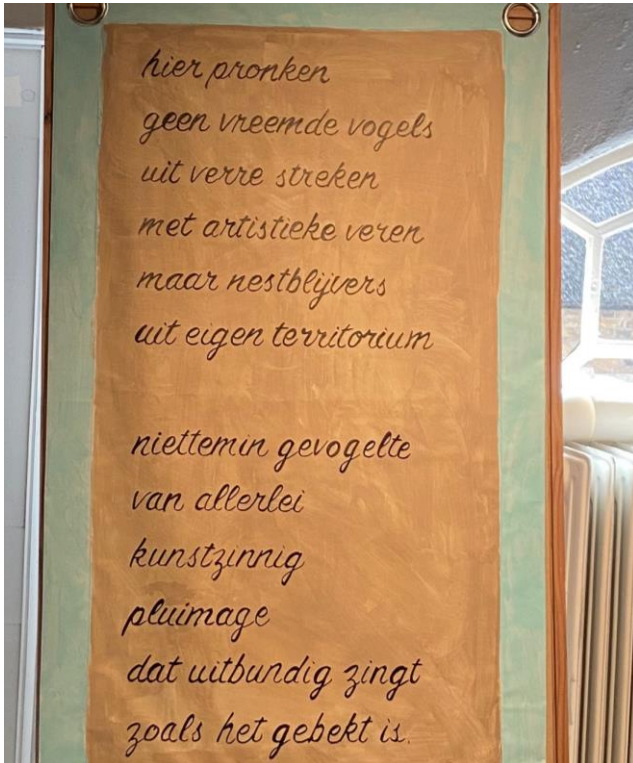 hier pronken
geen vreemde vogels
uit verre streken
met artistieke veren
maar nestblijvers
uit eigen territorium
niettemin gevogelte
van allerlei
kunstzinnig
pluimage
dat uitbundig zingt
zoals het gebekt is.